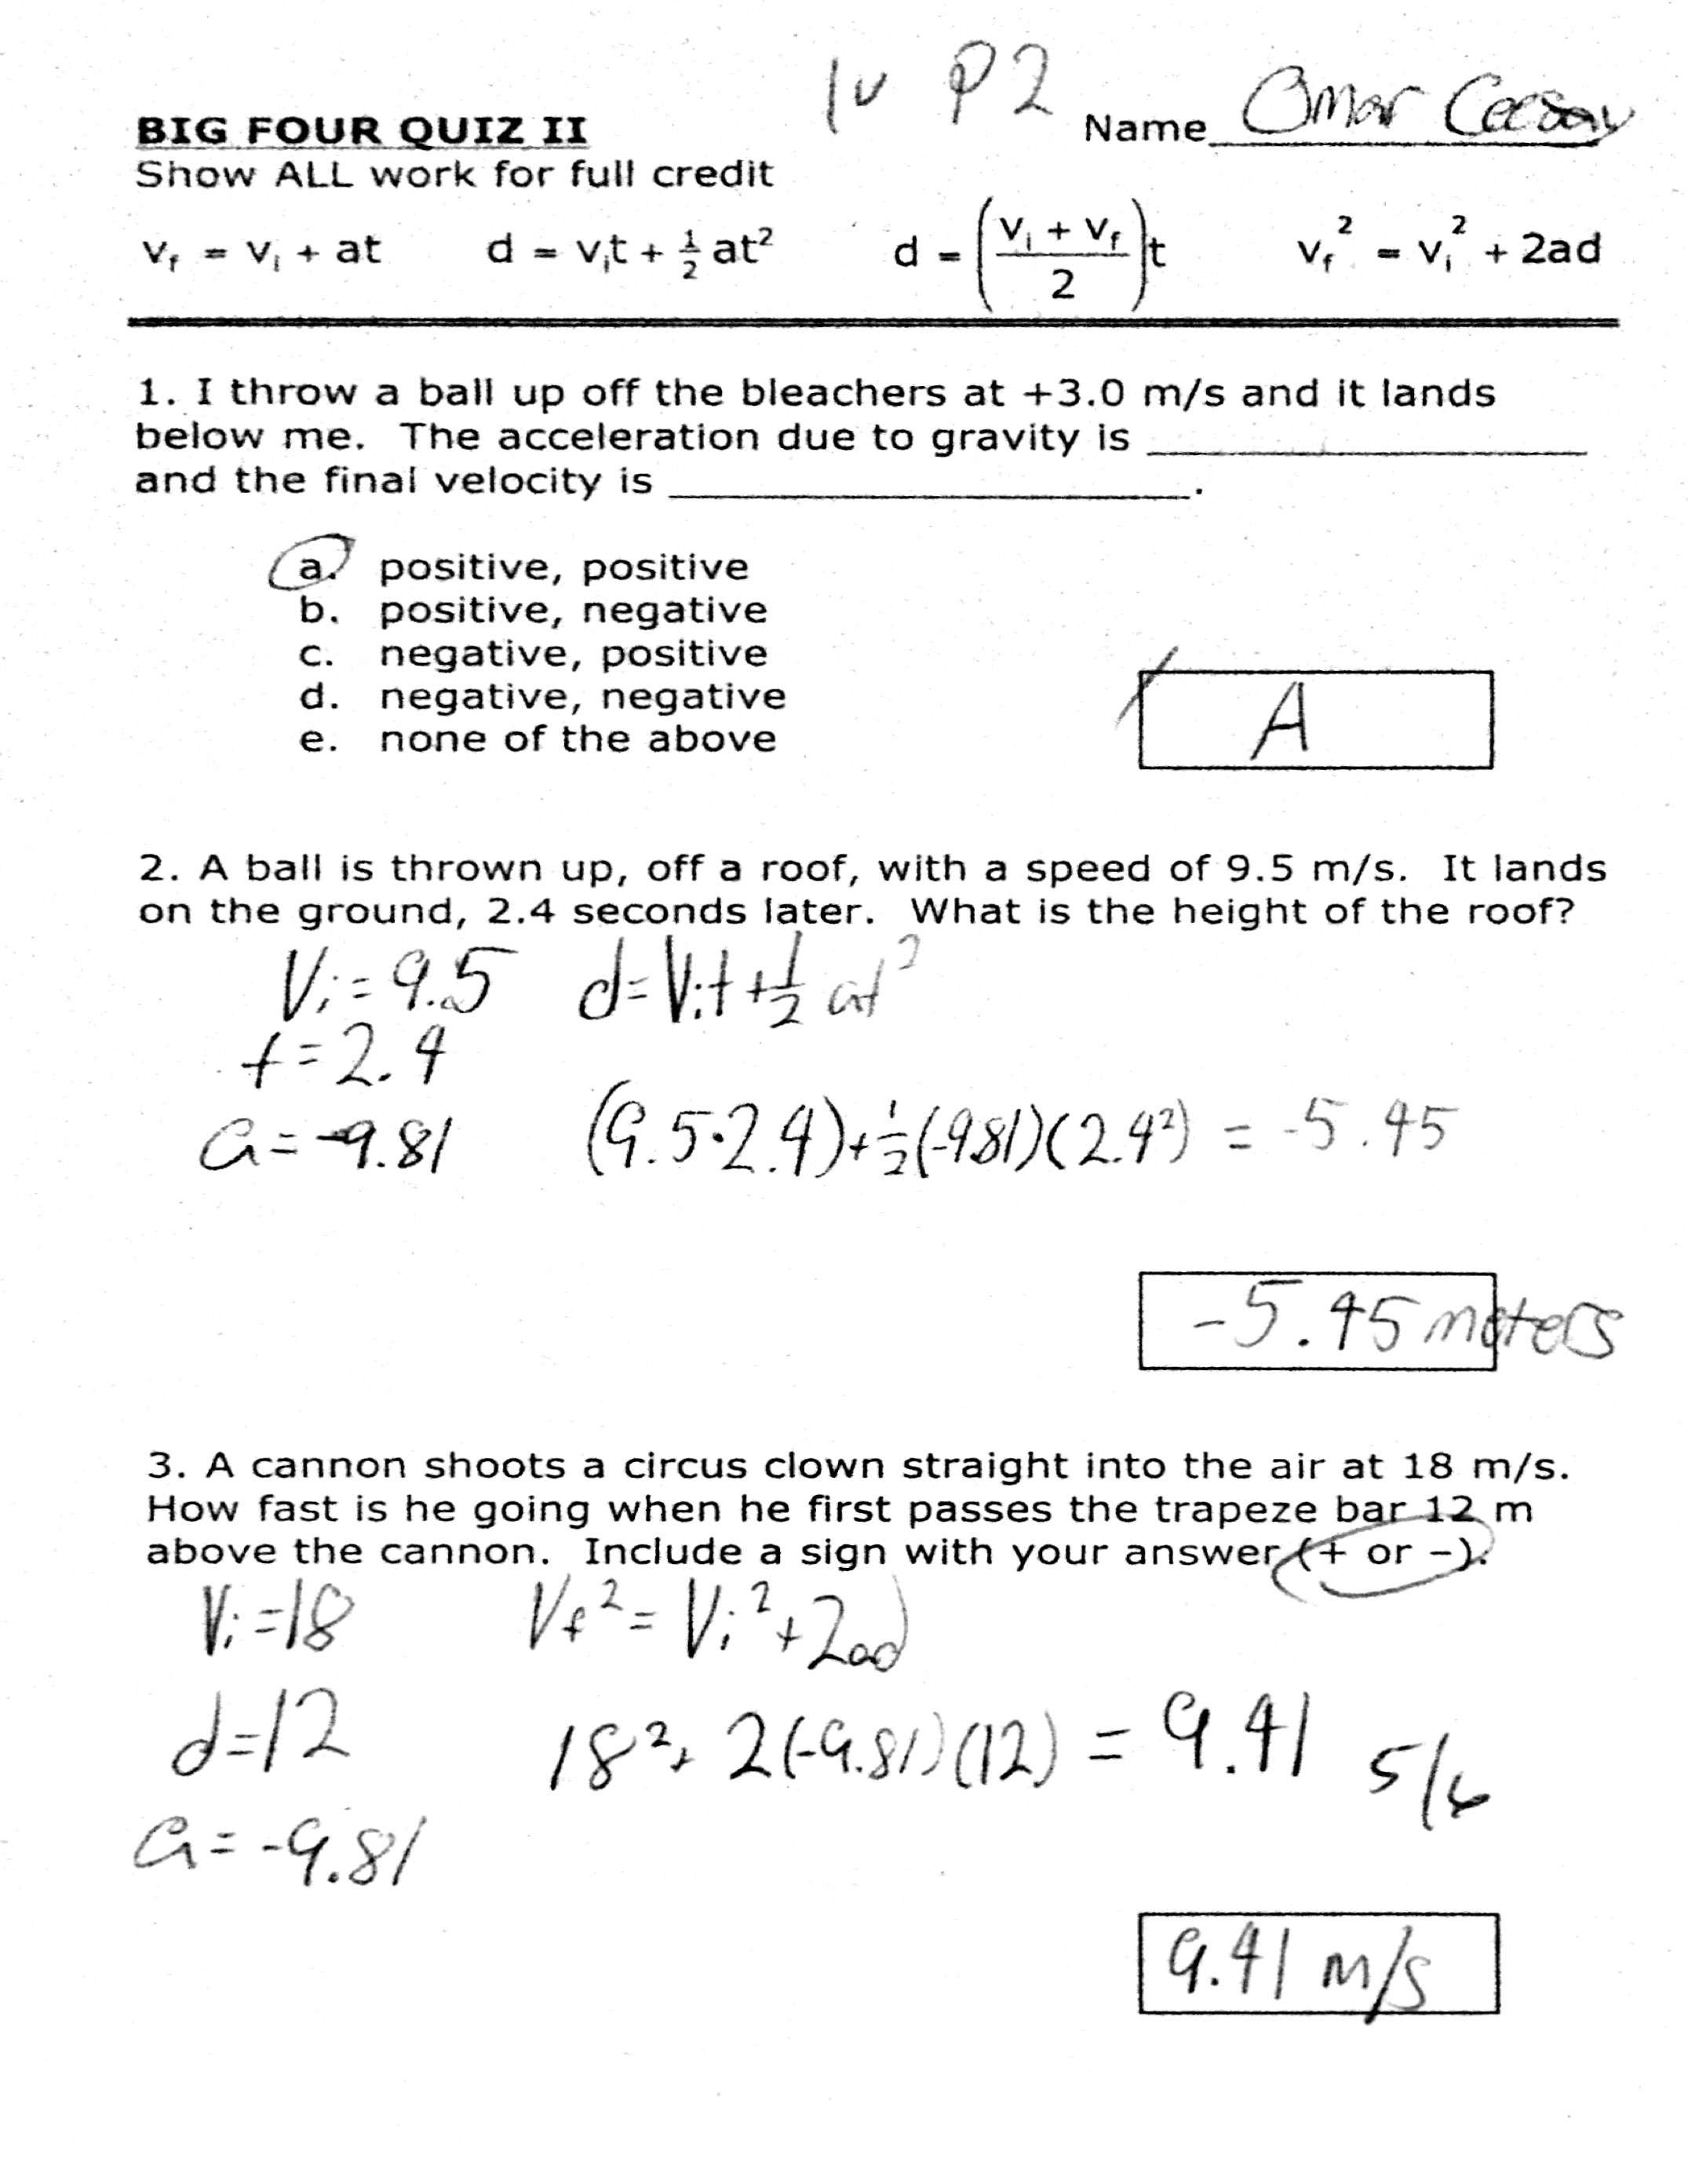 1v P2
Name Omar Ceesay
BIG FOUR QUIZ II
Show ALL work for full credit
v_f = v_i + at    d = v_i t + ½ at²    d = ((v_i + v_f)/2)t    v_f² = v_i² + 2ad
1. I throw a ball up off the bleachers at +3.0 m/s and it lands
below me. The acceleration due to gravity is ____________
and the final velocity is ____________.
a. positive, positive
b. positive, negative
c. negative, positive
d. negative, negative
e. none of the above
A
2. A ball is thrown up, off a roof, with a speed of 9.5 m/s. It lands
on the ground, 2.4 seconds later. What is the height of the roof?
Vi = 9.5    d = Vit + ½ at²
t = 2.4
a = -9.81    (9.5·2.4)+½(-9.81)(2.4²) = -5.45
-5.45 meters
3. A cannon shoots a circus clown straight into the air at 18 m/s.
How fast is he going when he first passes the trapeze bar 12 m
above the cannon. Include a sign with your answer (+ or -).
Vi = 18    Vf² = Vi² + 2ad
d = 12    18² + 2(-9.81)(12) = 9.41    5/6
a = -9.81
9.41 m/s